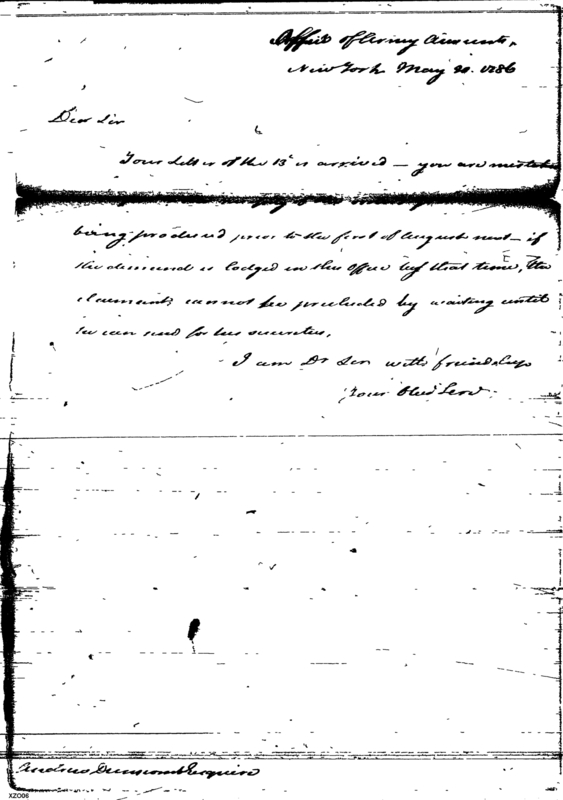 Office of Army Accounts,
New York May 20. 1786
Dear Sir
Your Letter of the 13th is arrived — you are mistaken
being produced prior to the first of August next — if
the demand is lodged in this office by that time, the
claimants cannot be precluded by waiting until
he can send for his securities.
I am Dr Sir with friendship
Your Obed Serv
Andrew Dunscomb Esquire
XZO06